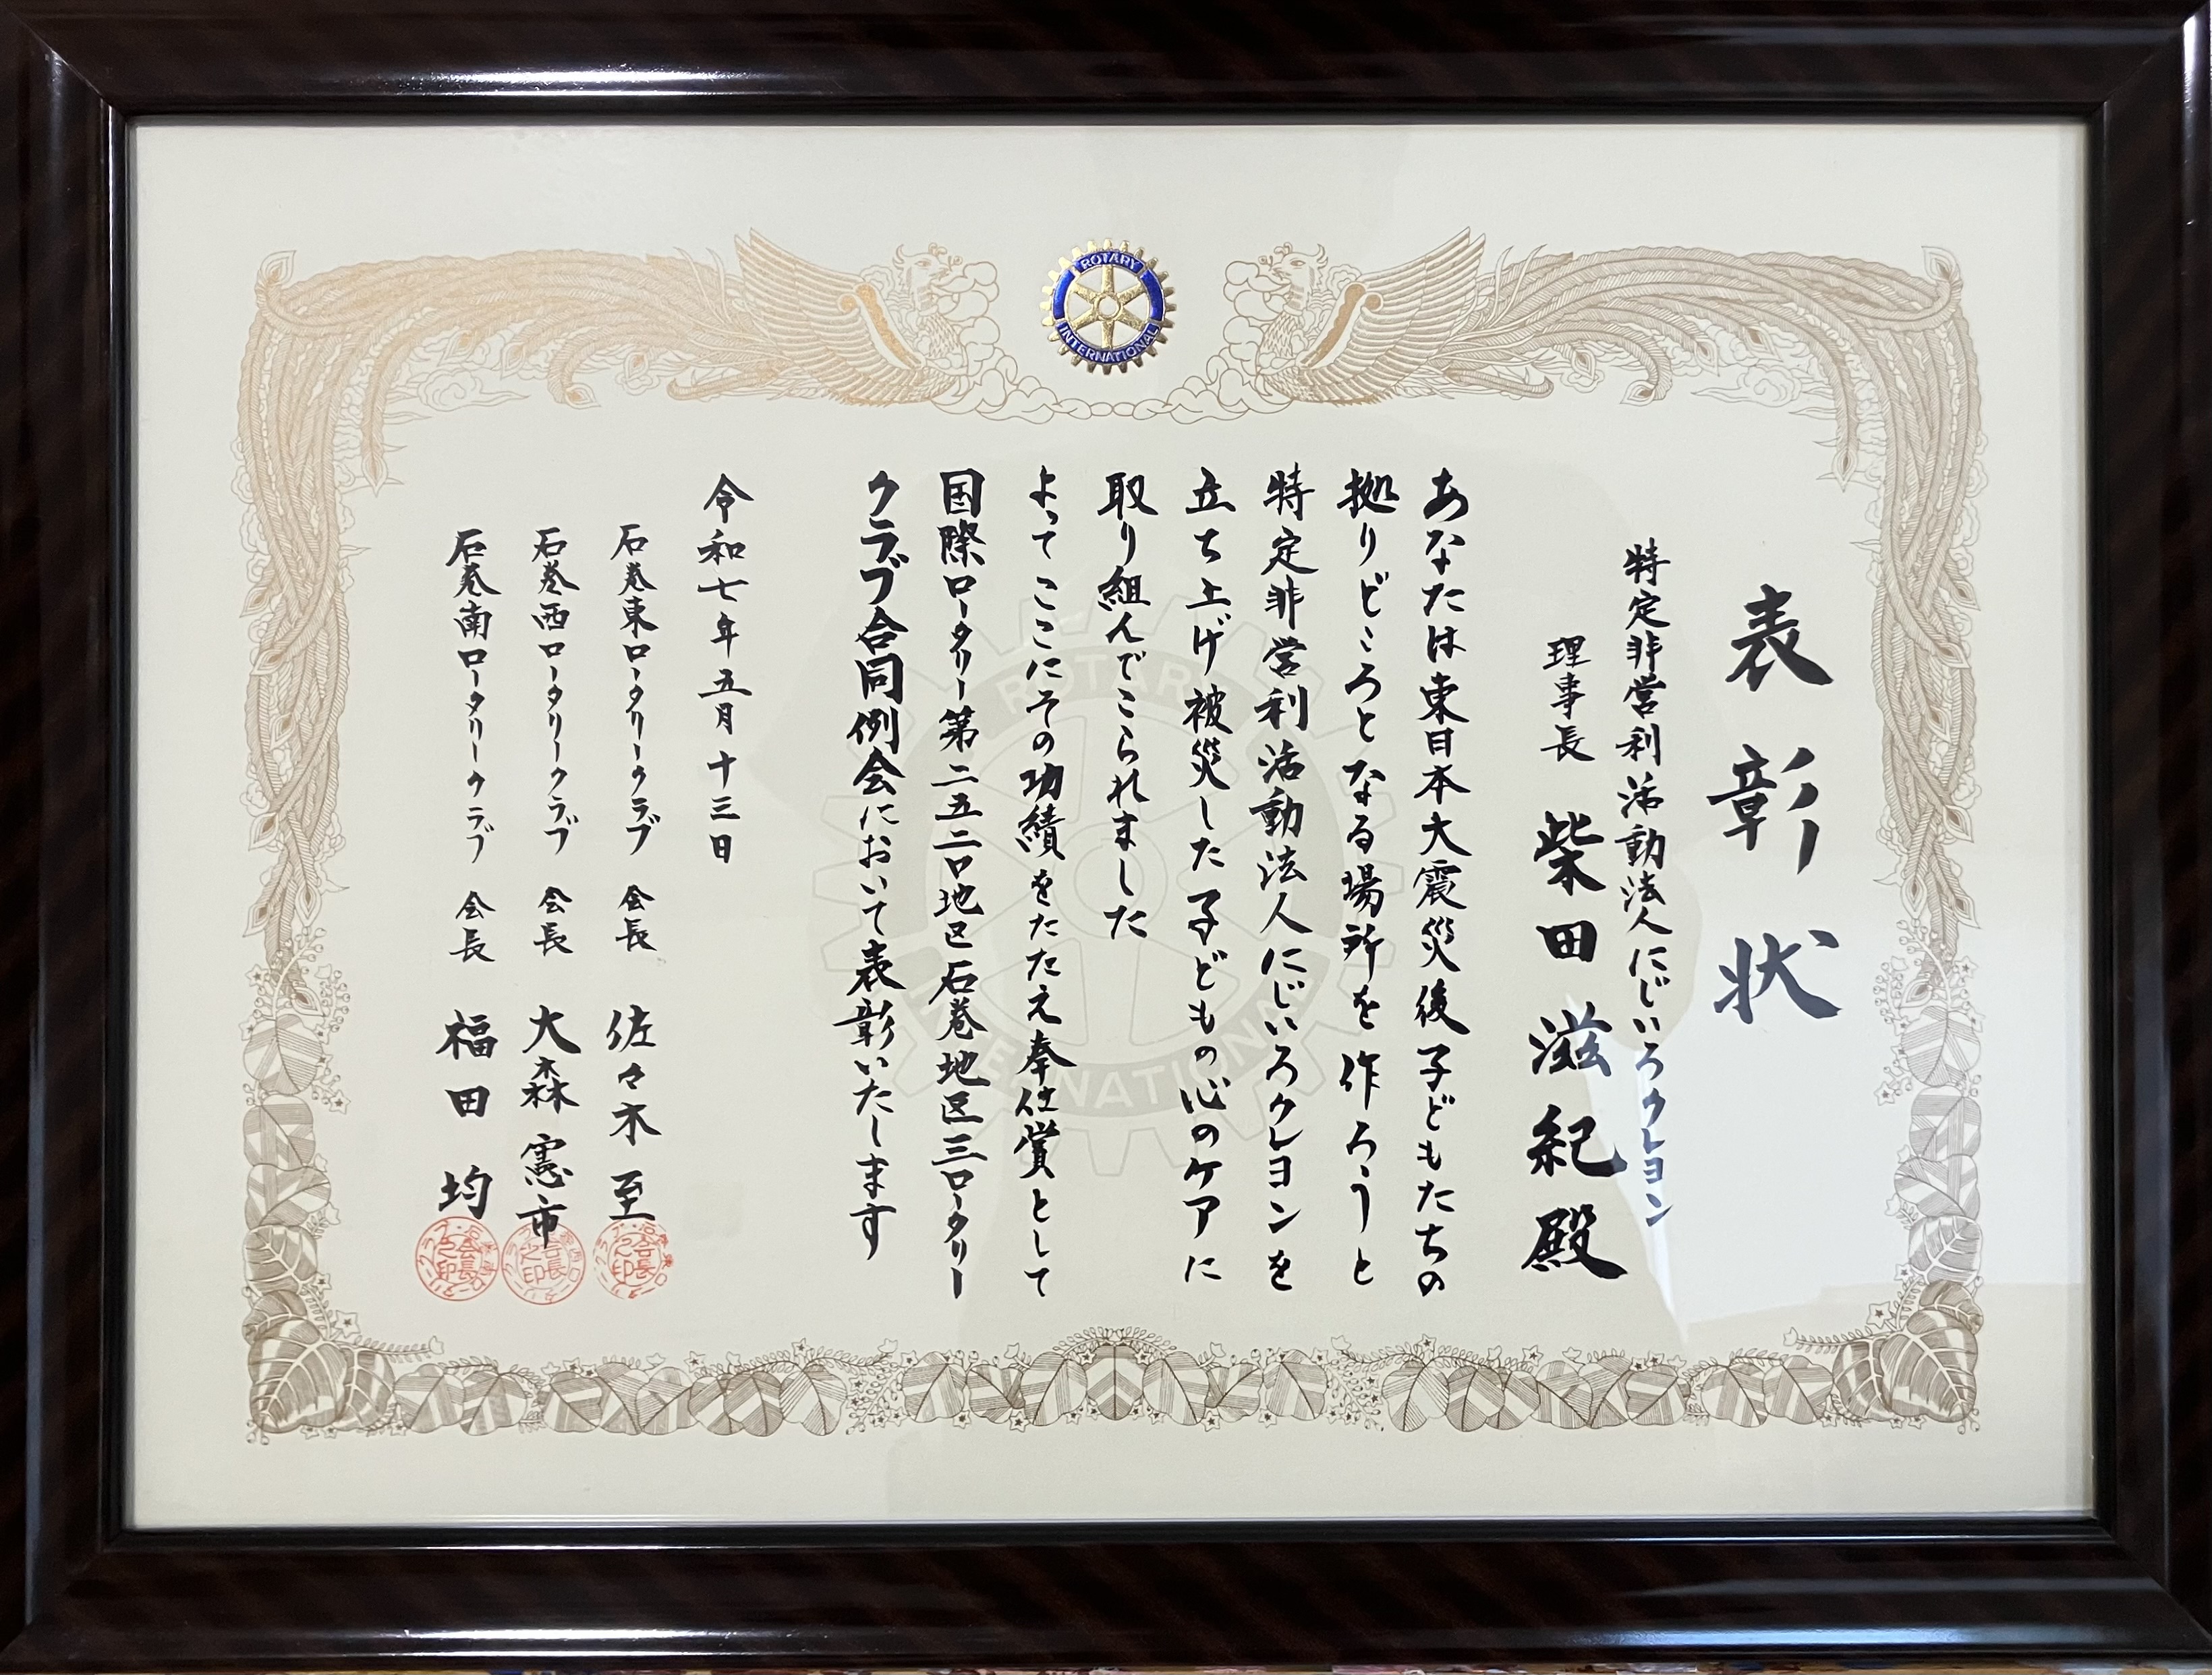 ROTARY
INTERNATIONAL
表彰状
特定非営利活動法人にじいろクレヨン
理事長 柴田滋紀殿
あなたは東日本大震災後子どもたちの
拠りどころとなる場所を作ろうと
特定非営利活動法人にじいろクレヨンを
立ち上げ被災した子どもの心のケアに
取り組んでこられました
よってここにその功績をたたえ奉仕賞として
国際ロータリー第二五二〇地区石巻地区三ロータリー
クラブ合同例会において表彰いたします
令和七年五月十三日
石巻東ロータリークラブ 会長 佐々木 至
石巻西ロータリークラブ 会長 大森 憲市
石巻南ロータリークラブ 会長 福田 均
ROTARY
INTERNATIONAL